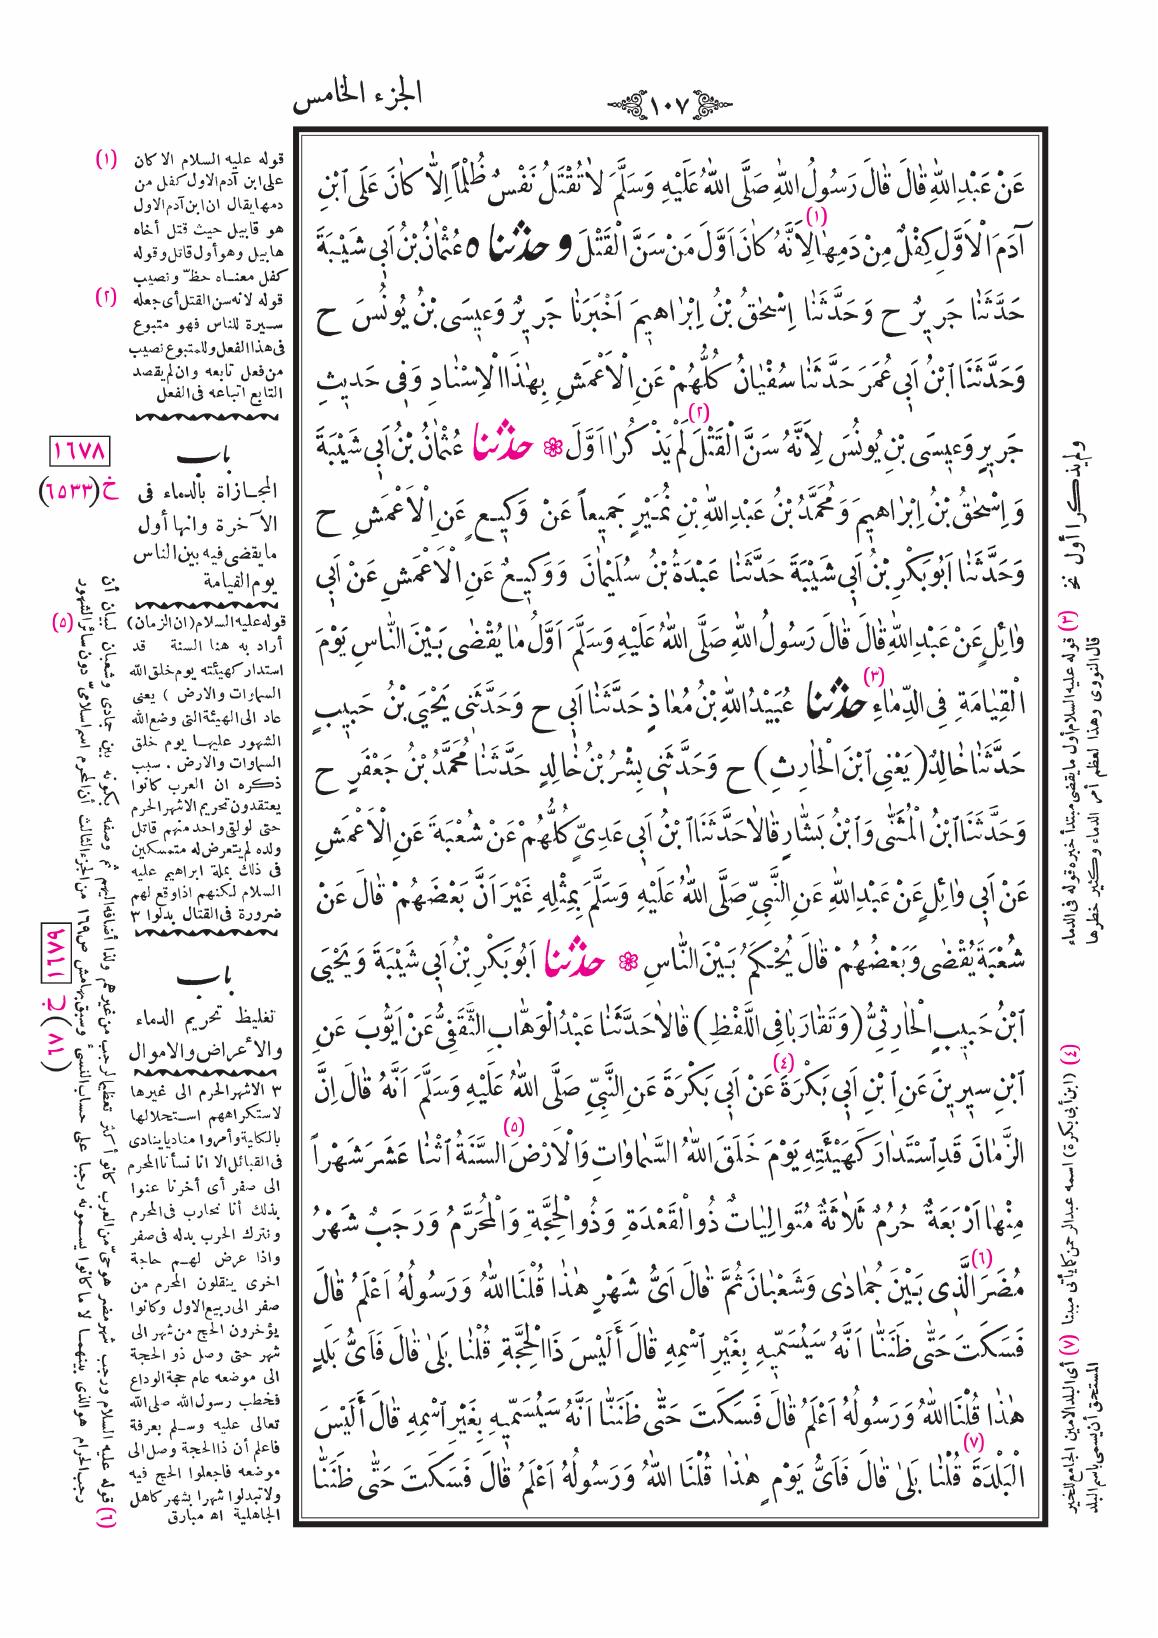 الجزء الخامس
١٠٧
عَنْ عَبْدِاللّٰهِ قَالَ قَالَ رَسُولُ اللّٰهِ صَلَّى اللّٰهُ عَلَيْهِ وَسَلَّمَ لَا تُقْتَلُ نَفْسٌ ظُلْمًا اِلَّا كَانَ عَلَى ابْنِ
آدَمَ الْاَوَّلِ كِفْلٌ مِنْ دَمِهَا (١) لِاَنَّهُ كَانَ اَوَّلَ مَنْ سَنَّ الْقَتْلَ و حدثنا ٥ عُثْمَانُ بْنُ اَبِى شَيْبَةَ
حَدَّثَنَا جَرِيرٌ ح وَحَدَّثَنَا اِسْحٰقُ بْنُ اِبْرَاهِيمَ اَخْبَرَنَا جَرِيرٌ وَعِيسَى بْنُ يُونُسَ ح
وَحَدَّثَنَا ابْنُ اَبِى عُمَرَ حَدَّثَنَا سُفْيَانُ كُلُّهُمْ عَنِ الْاَعْمَشِ بِهٰذَا الْاِسْنَادِ وَفِى حَدِيثِ
جَرِيرٍ وَعِيسَى بْنِ يُونُسَ لِاَنَّهُ سَنَّ الْقَتْلَ (٢) لَمْ يَذْكُرَا اَوَّلَ حدثنا عُثْمَانُ بْنُ اَبِى شَيْبَةَ
وَاِسْحٰقُ بْنُ اِبْرَاهِيمَ وَمُحَمَّدُ بْنُ عَبْدِاللّٰهِ بْنِ نُمَيْرٍ جَمِيعًا عَنْ وَكِيعٍ عَنِ الْاَعْمَشِ ح
وَحَدَّثَنَا اَبُو بَكْرِ بْنُ اَبِى شَيْبَةَ حَدَّثَنَا عَبْدَةُ بْنُ سُلَيْمَانَ وَوَكِيعٌ عَنِ الْاَعْمَشِ عَنْ اَبِى
وَائِلٍ عَنْ عَبْدِاللّٰهِ قَالَ قَالَ رَسُولُ اللّٰهِ صَلَّى اللّٰهُ عَلَيْهِ وَسَلَّمَ اَوَّلُ مَا يُقْضٰى بَيْنَ النَّاسِ يَوْمَ
الْقِيَامَةِ فِى الدِّمَاءِ (٣) حدثنا عُبَيْدُاللّٰهِ بْنُ مُعَاذٍ حَدَّثَنَا اَبِى ح وَحَدَّثَنِى يَحْيَى بْنُ حَبِيبٍ
حَدَّثَنَا خَالِدٌ (يَعْنِى ابْنَ الْحَارِثِ) ح وَحَدَّثَنِى بِشْرُ بْنُ خَالِدٍ حَدَّثَنَا مُحَمَّدُ بْنُ جَعْفَرٍ ح
وَحَدَّثَنَا ابْنُ الْمُثَنّٰى وَابْنُ بَشَّارٍ قَالَا حَدَّثَنَا ابْنُ اَبِى عَدِىٍّ كُلُّهُمْ عَنْ شُعْبَةَ عَنِ الْاَعْمَشِ
عَنْ اَبِى وَائِلٍ عَنْ عَبْدِاللّٰهِ عَنِ النَّبِىِّ صَلَّى اللّٰهُ عَلَيْهِ وَسَلَّمَ بِمِثْلِهِ غَيْرَ اَنَّ بَعْضَهُمْ قَالَ عَنْ
شُعْبَةَ يُقْضٰى وَبَعْضُهُمْ قَالَ يُحْكَمُ بَيْنَ النَّاسِ حدثنا اَبُو بَكْرِ بْنُ اَبِى شَيْبَةَ وَيَحْيَى
ابْنُ حَبِيبٍ الْحَارِثِىُّ (وَتَقَارَبَا فِى اللَّفْظِ) قَالَا حَدَّثَنَا عَبْدُ الْوَهَّابِ الثَّقَفِىُّ عَنْ اَيُّوبَ عَنِ
ابْنِ سِيرِينَ عَنِ ابْنِ اَبِى بَكْرَةَ (٤) عَنْ اَبِى بَكْرَةَ عَنِ النَّبِىِّ صَلَّى اللّٰهُ عَلَيْهِ وَسَلَّمَ اَنَّهُ قَالَ اِنَّ
الزَّمَانَ قَدِ اسْتَدَارَ كَهَيْئَتِهِ يَوْمَ خَلَقَ اللّٰهُ السَّمٰوَاتِ وَالْاَرْضَ (٥) السَّنَةُ اثْنَا عَشَرَ شَهْرًا
مِنْهَا اَرْبَعَةٌ حُرُمٌ ثَلَاثَةٌ مُتَوَالِيَاتٌ ذُو الْقَعْدَةِ وَذُو الْحِجَّةِ وَالْمُحَرَّمُ وَرَجَبٌ شَهْرُ
مُضَرَ الَّذِى بَيْنَ جُمَادٰى وَشَعْبَانَ (٦) ثُمَّ قَالَ اَىُّ شَهْرٍ هٰذَا قُلْنَا اللّٰهُ وَرَسُولُهُ اَعْلَمُ قَالَ
فَسَكَتَ حَتّٰى ظَنَنَّا اَنَّهُ سَيُسَمِّيهِ بِغَيْرِ اسْمِهِ قَالَ أَلَيْسَ ذَا الْحِجَّةِ قُلْنَا بَلٰى قَالَ فَاَىُّ بَلَدٍ
هٰذَا قُلْنَا اللّٰهُ وَرَسُولُهُ اَعْلَمُ قَالَ فَسَكَتَ حَتّٰى ظَنَنَّا اَنَّهُ سَيُسَمِّيهِ بِغَيْرِ اسْمِهِ قَالَ أَلَيْسَ
الْبَلْدَةَ (٧) قُلْنَا بَلٰى قَالَ فَاَىُّ يَوْمٍ هٰذَا قُلْنَا اللّٰهُ وَرَسُولُهُ اَعْلَمُ قَالَ فَسَكَتَ حَتّٰى ظَنَنَّا
(١) قوله عليه السلام الا كان
على ابن آدم الاول كفل من
دمها يقال ان ابن آدم الاول
هو قابيل حيث قتل أخاه
هابيل وهو أول قاتل وقوله
كفل معناه حظّ ونصيب
(٢) قوله لانه سن القتل أى جعله
سيرة للناس فهو متبوع
فى هذا الفعل وللمتبوع نصيب
من فعل تابعه وان لم يقصد
التابع اتباعه فى الفعل
١٦٧٨
خ (٦٥٣٣)
باب
المجازاة بالدماء فى
الآخرة وانها أول
ما يقضى فيه بين الناس
يوم القيامة
(٥) قوله عليه السلام (ان الزمان)
أراد به هنا السنة قد
استدار كهيئته يوم خلق الله
السماوات والارض) يعنى
عاد الى الهيئة التى وضع الله
الشهور عليها يوم خلق
السماوات والارض . سبب
ذكره ان العرب كانوا
يعتقدون تحريم الاشهر الحرم
حتى لو لقى واحد منهم قاتل
ولده لم يتعرض له متمسكين
فى ذلك بملة ابراهيم عليه
السلام لكنهم اذا وقع لهم
ضرورة فى القتال بدلوا ٣
١٦٧٩
خ (٦٧)
باب
تغليظ تحريم الدماء
والأعراض والاموال
٣ الاشهر الحرم الى غيرها
لاستكراههم استحلالها
بالكلية وأمروا مناديا ينادى
فى القبائل الا انا نسأنا المحرم
الى صفر أى أخرنا عنوا
بذلك أنا نحارب فى المحرم
ونترك الحرب بدله فى صفر
واذا عرض لهم حاجة
اخرى ينقلون المحرم من
صفر الى ربيع الاول وكانوا
يؤخرون الحج من شهر الى
شهر حتى وصل ذو الحجة
الى موضعه عام حجة الوداع
فخطب رسول الله صلى الله
تعالى عليه وسلم بعرفة
فاعلم أن ذا الحجة وصل الى
موضعه فاجعلوا الحج فيه
ولا تبدلوا شهرا بشهر كاهل
الجاهلية اه مبارق
(٦) قوله عليه السلام ورجب شهر مضر هو حىّ من العرب كانوا أكثر تعظيما لرجب من غيرهم ولذا أضافه اليهم ثم وصفه بكونه بين جمادى وشعبان لبيان أن
رجب الحرام هو الذى بينهما لا ما كانوا يسمونه رجبا على حساب النسىء وسبق بهامش ص ١٦٩ من الجزء الثالث أن المحرم اسم اسلامى دون سائر الشهور
ولم يذكرا أول نخ
(٣) قوله عليه السلام أول ما يقضى مبتدأ خبره قوله فى الدماء
قال النووى وهذا لعظم أمر الدماء وكثير خطرها
(٤) (ابن أبى بكرة) اسمه عبدالرحمن كما يأتى مبينا
(٧) أى البلد الامين الجامع للخير
المستحق أن يسمى باسم البلد